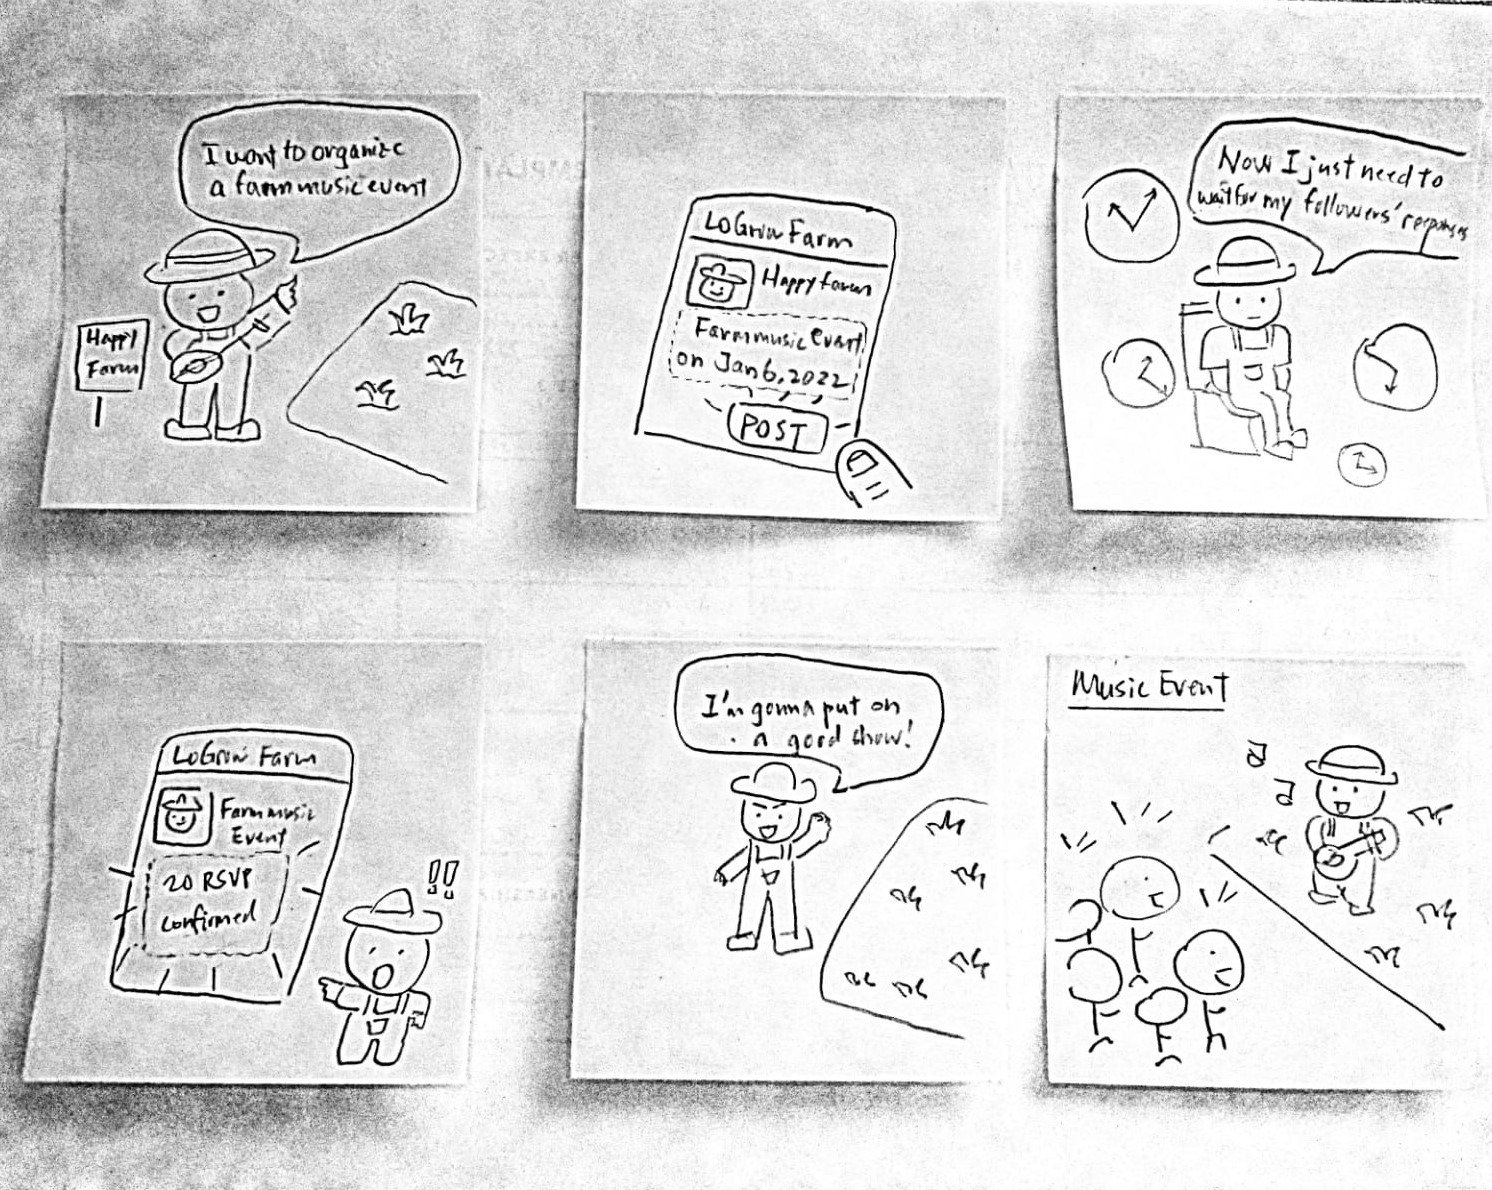 I want to organize
a farm music event
Happy
Farm
LoGrow Farm
Happy farm
Farm music Event
on Jan 6, 2022
POST
Now I just need to
wait for my followers' responses
LoGrow Farm
Farm music
Event
20 RSVP
confirmed
!!
I'm gonna put on
a good show!
Music Event